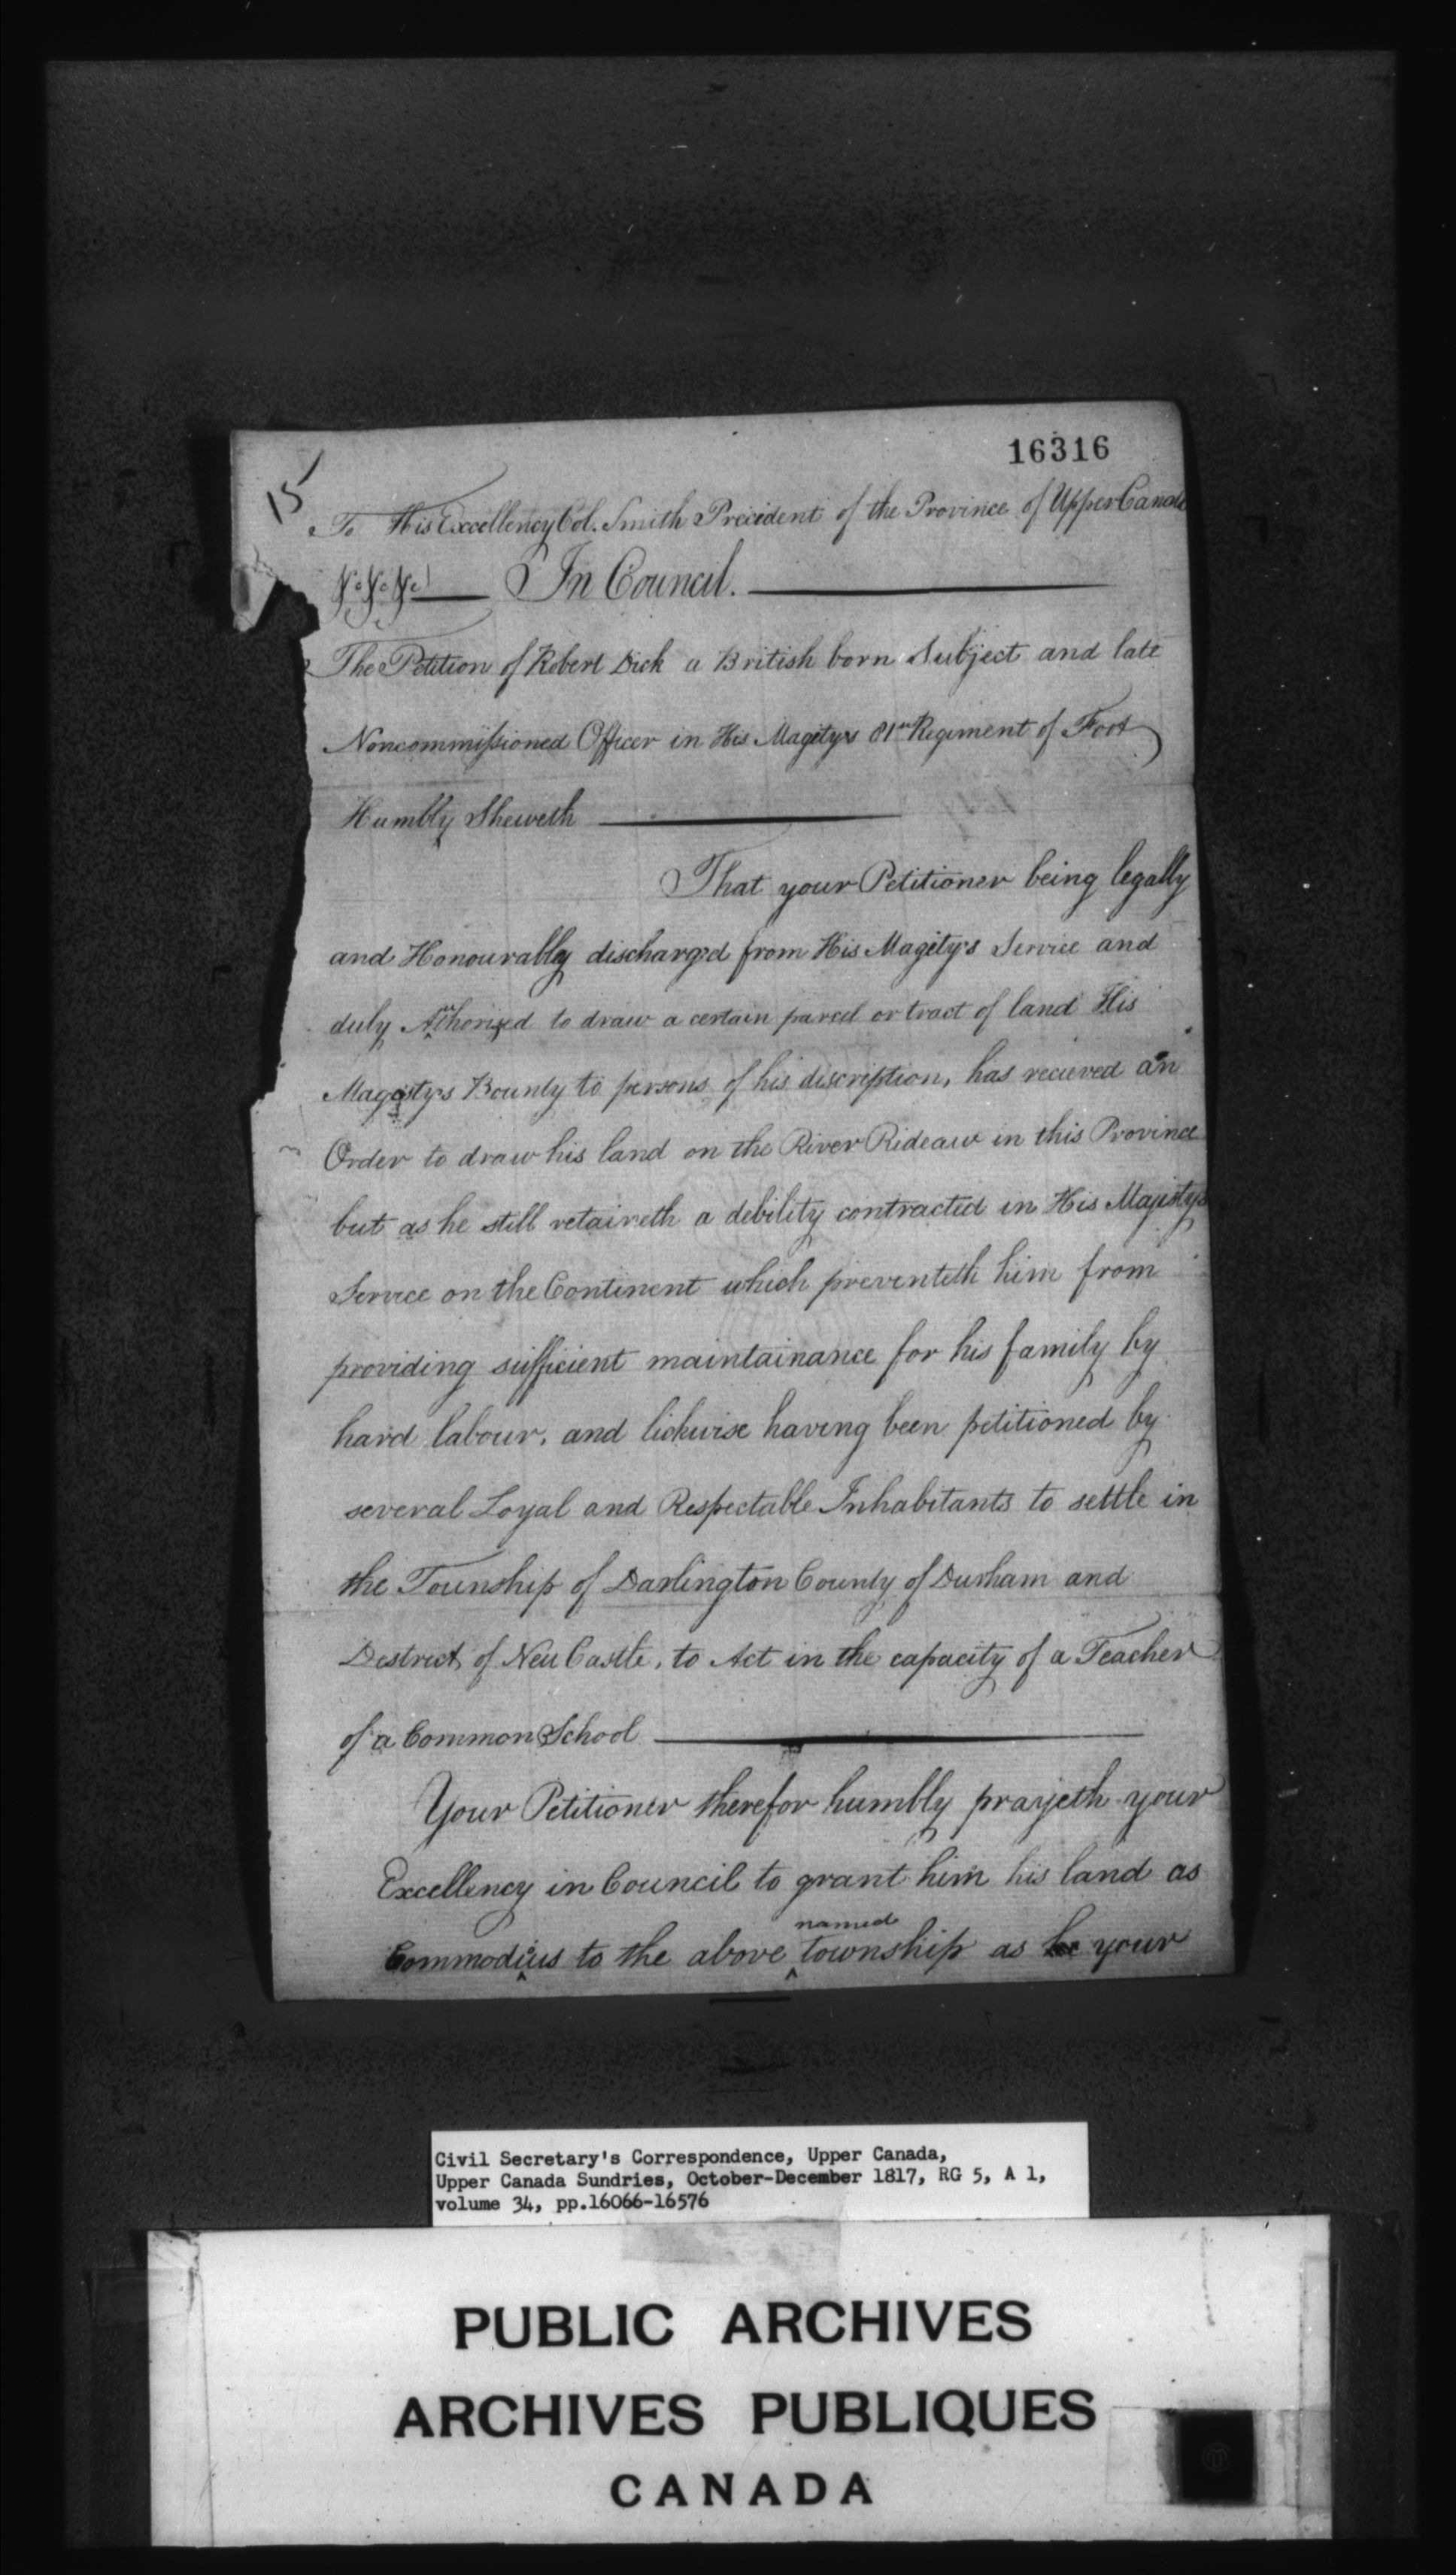 16316
15
To His Excellency Col. Smith Precident of the Province of Upper Canada
&c &c &c In Council.
The Petition of Robert Dick a British born Subject and late
Noncommissioned Officer in His Magitys 81st Regiment of Foot
Humbly Sheweth
That your Petitioner being legally
and Honourably discharg'd from His Magity's Service and
duly Authorized to draw a certain parcel or tract of land His
Magesty's Bounty to persons of his discription, has recieved an
Order to draw his land on the River Rideaw in this Province
but as he still retaineth a debility contracted in His Majistys
Service on the Continent which preventeth him from
providing sufficient maintainance for his family by
hard labour, and lickwise having been petitioned by
several Loyal and Respectable Inhabitants to settle in
the Township of Darlington County of Durham and
District of New Castle, to Act in the capacity of a Teacher
of a Common School
Your Petitioner therefor humbly prayeth your
Excellency in Council to grant him his land as
Commodious to the above named township as your
Civil Secretary's Correspondence, Upper Canada,
Upper Canada Sundries, October-December 1817, RG 5, A 1,
volume 34, pp.16066-16576
PUBLIC ARCHIVES
ARCHIVES PUBLIQUES
CANADA